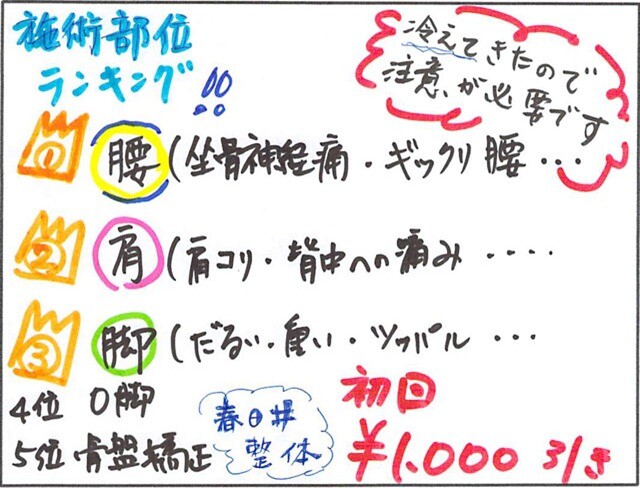 施術部位
ランキング!!
冷えてきたので
注意が必要です
① 腰(坐骨神経痛・ギックリ腰・・・
② 肩(肩コリ・背中への痛み・・・・
③ 脚(だるい・重い・ツッパル・・・
4位 O脚
5位 骨盤矯正
春日井
整体
初回
¥1,000 引き